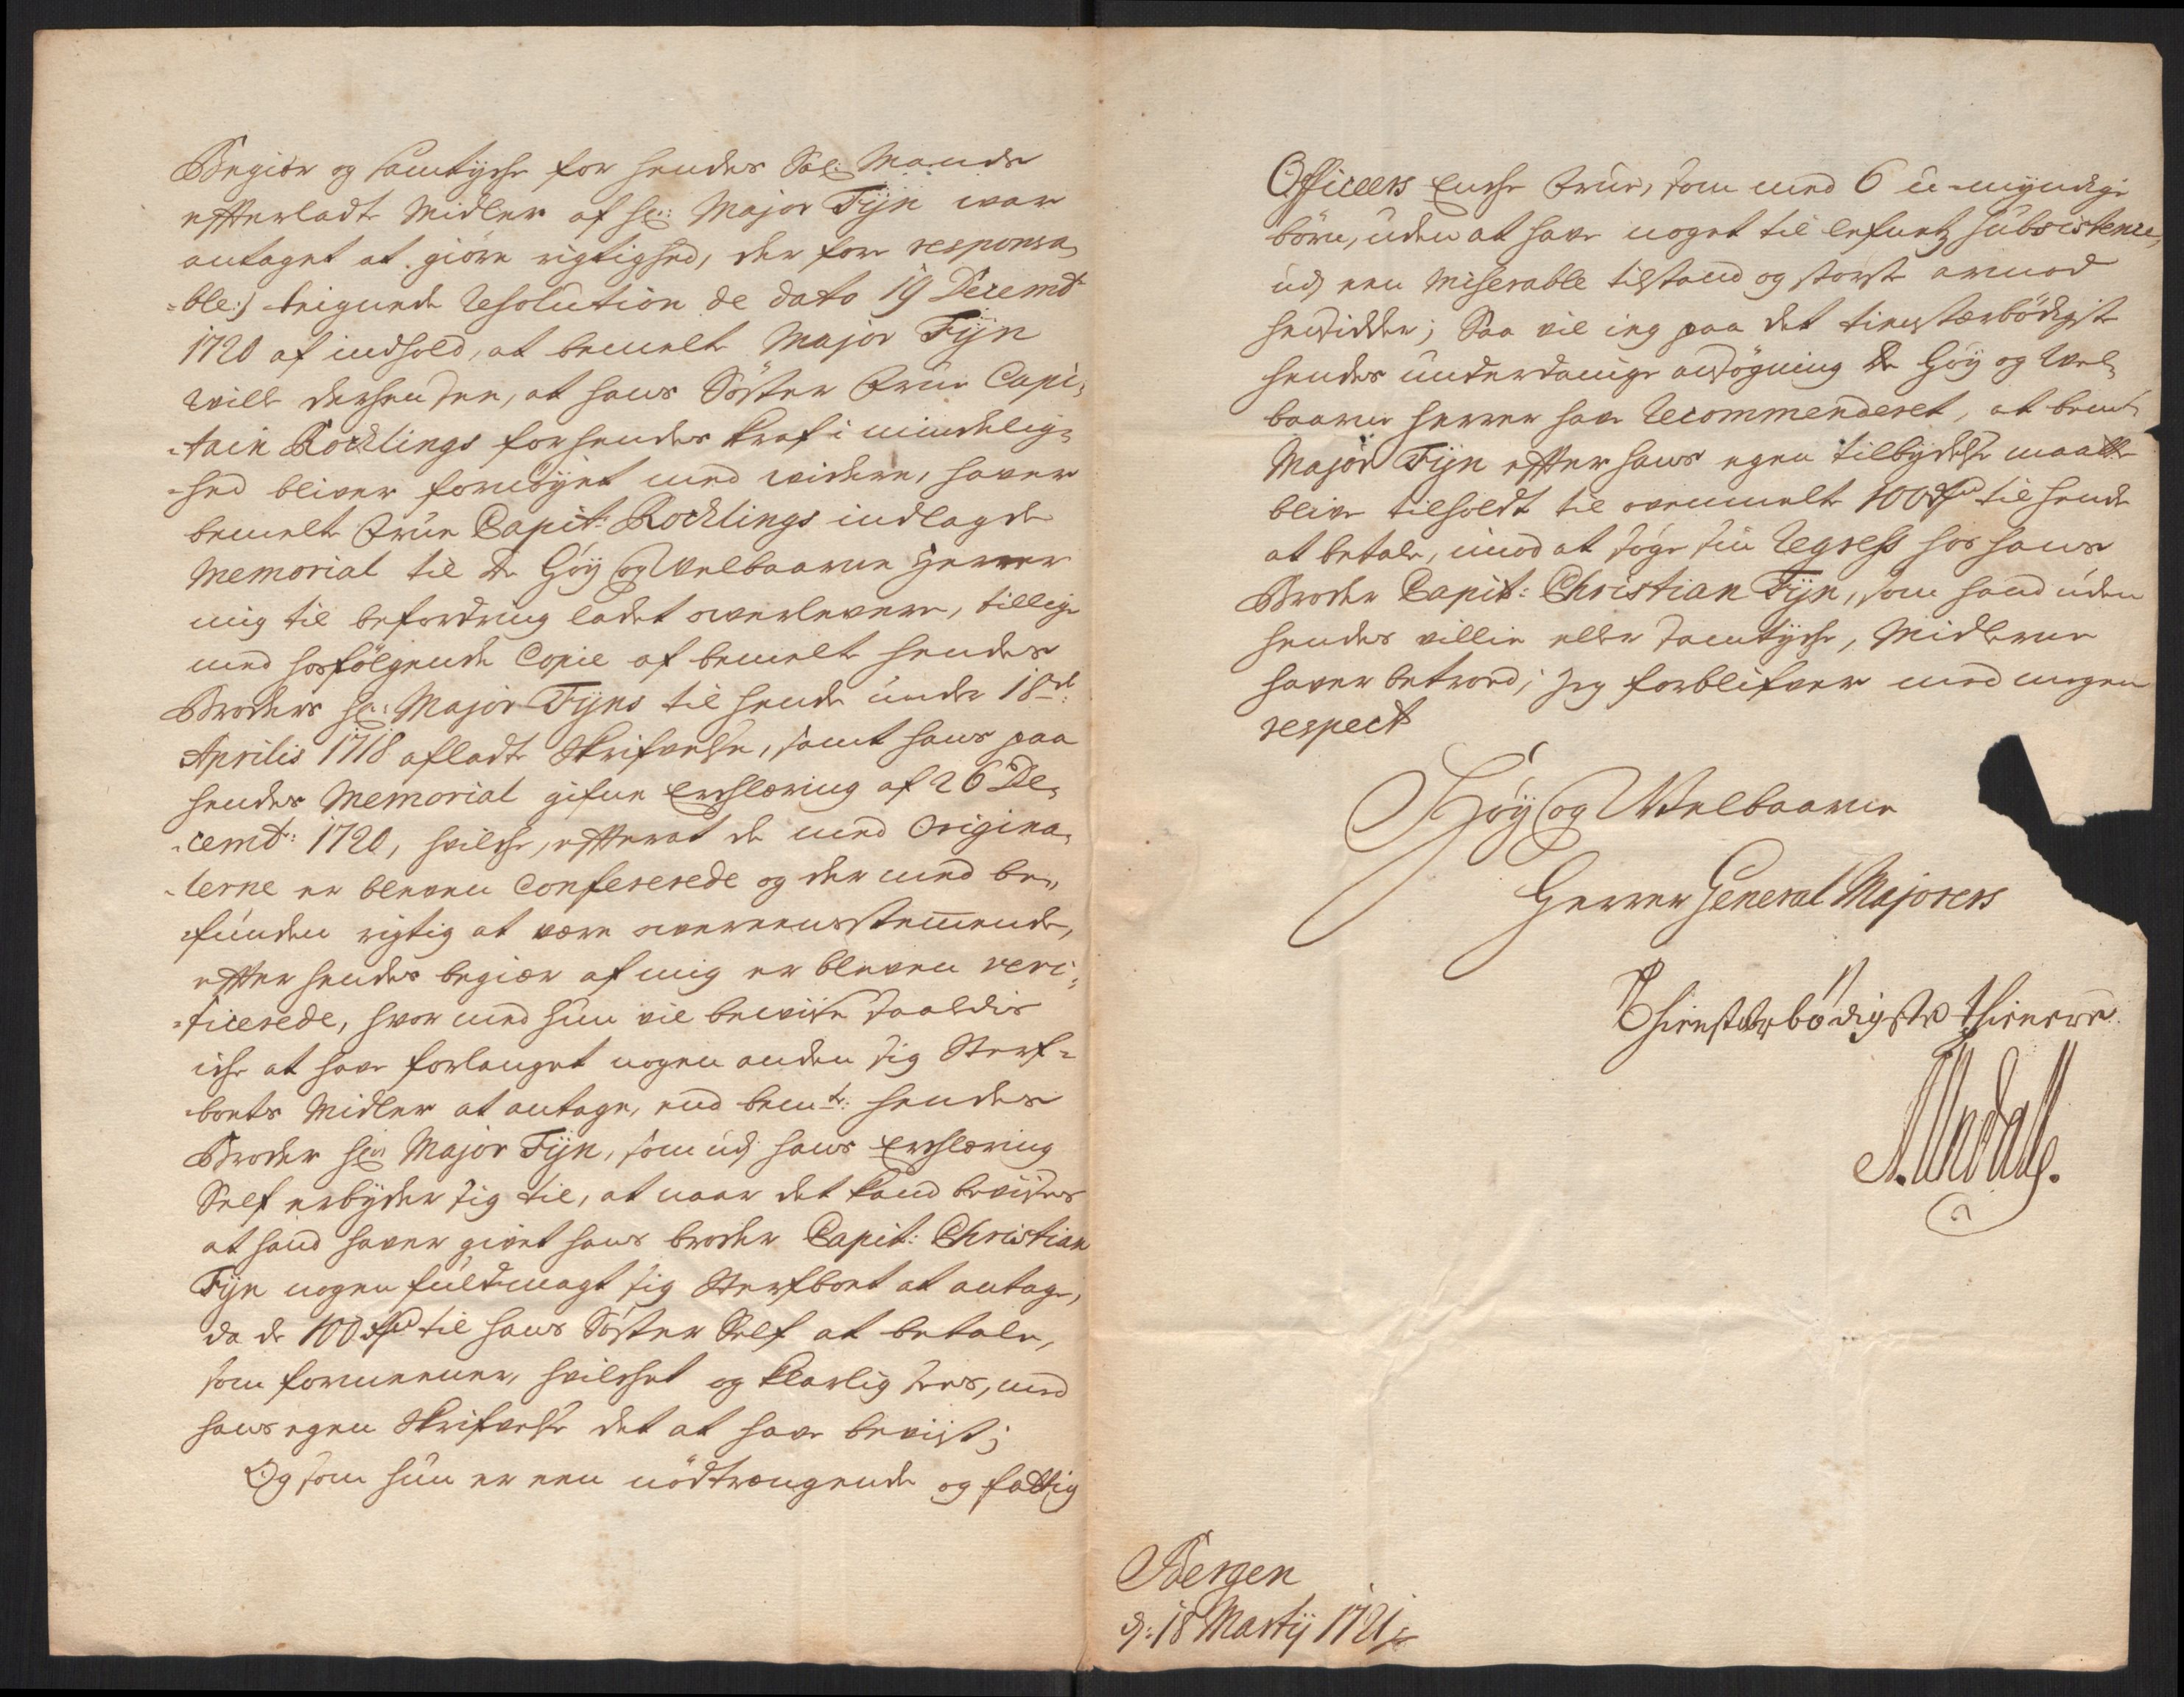 Begiær og samtyche for hendes Sal: Mands
efterladte Midler af hr: Major Fÿn war
antaget at giöre rigtighed, der for responsa,
=ble:) teignede Resolution de dato 19 Decembr
1720 af indhold, at bemelte Major Fÿn
wille dersen see, at hans Söster Frue Capi,
=tain Röcklings for hendes kraf i mindelig=
=hed bliver fornöÿet med videre, haver
bemelte Frue Capit: Röcklings indlagde
Memorial til De Höÿ og Welbaarne Herrer
mig til befordring ladet overlevere, tillige
med hosfölgende Copie af bemelte hendes
Broders hr: Major Fÿns til hende under 18de
Aprilis 1718 afladte Skrifvelse, samt hans paa
hendes Memorial gifne Erchlæring af 26 De,
=cembr: 1720, hvilche, efterat de med Origina,
=lerne er bleven Confererede og der med be,
=funden rigtig at være overeensstemende,
efter hendes begiær af mig er bleven veri,
=ficerede, hvor med hun vil bewise saaledis
iche at have forlanget nogen anden sig Sterf=
boets Midler at antage, end bemte: hendes
Broder hr: Major Fÿn, som udj hans Erchlæring
Self erbÿder sig til, at naar det kand bevises
at hand haver givet hans broder Capit: Christian
Fÿn nogen fuldmagt sig Sterfboet at antage,
da de 100 rdr til hans Söster Self at betale,
som formeener, hvilchet og klarlig sees, med
hans egen Skrifvelse det at have bevist;
Og som hun er een nödtrængende og fattig
Officeers Enche Frue, som med 6 u-myndige
börn, uden at have noget til lefnetz subsistence,
udj een Miserable tilstand og störste armod
hensidder; Saa vil ieg paa det tienstærbödigste
hendes underdanige ansögning De Höÿ og Wel,
baarne Herrer have Recommenderet, at bemte
Major Fÿn efter hans egen tilbydelse maatte
blive tilholdt til ovenmelte 100 rdr til hende
at betale, imod at söge sin Regress hos hans
Broder Capit: Christian Fÿn, som hand uden
hendes villie eller samtyche, Midlerne
haver betroed; Jeg forblifver med megen
respect
Höÿ og Welbaarne
Herrer General Majorers
Thienstærbödigste thienere
Bergen
d: 18 Martÿ 1721